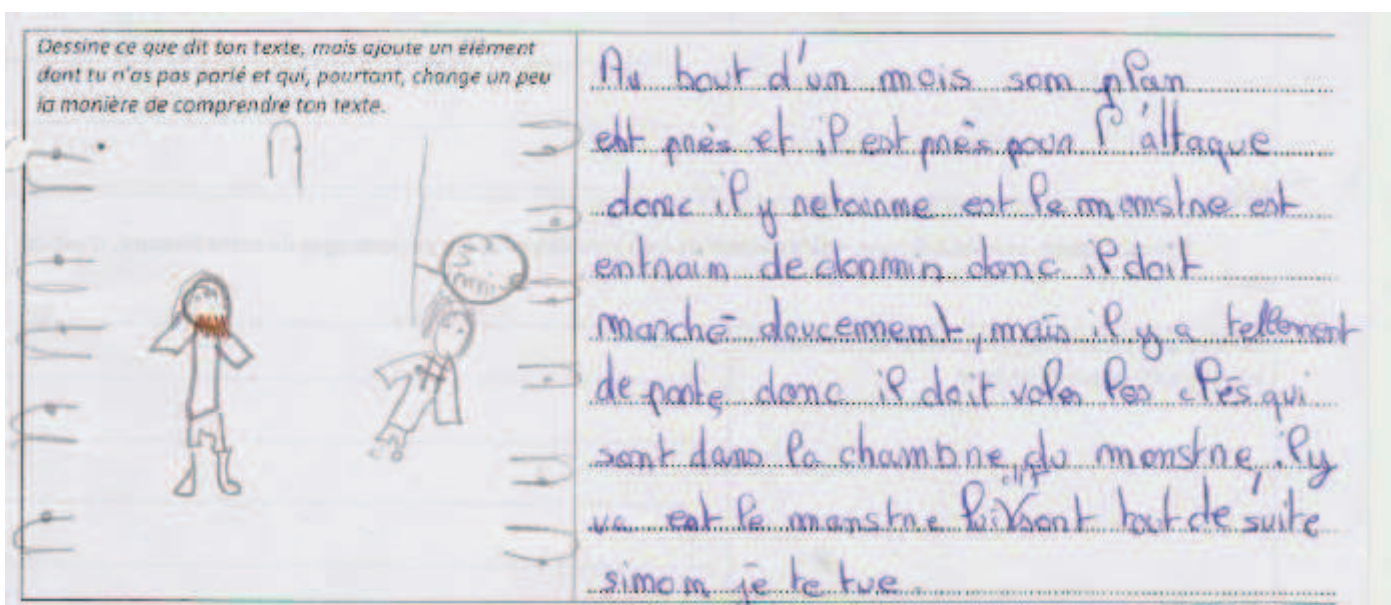 Dessine ce que dit ton texte, mais ajoute un élément
dont tu n'as pas parlé et qui, pourtant, change un peu
la manière de comprendre ton texte.
Au bout d'un mois som plan
est près et il est près pour l'attaque
donc il y retournme est le monstre est
entrain de dormir donc il doit
marché doucemment, mais il y a tellement
de porte donc il doit voler les clés qui
sont dans la chambre du monstre, il y
va est le monstre lui dit sort tout de suite
simom je te tue.